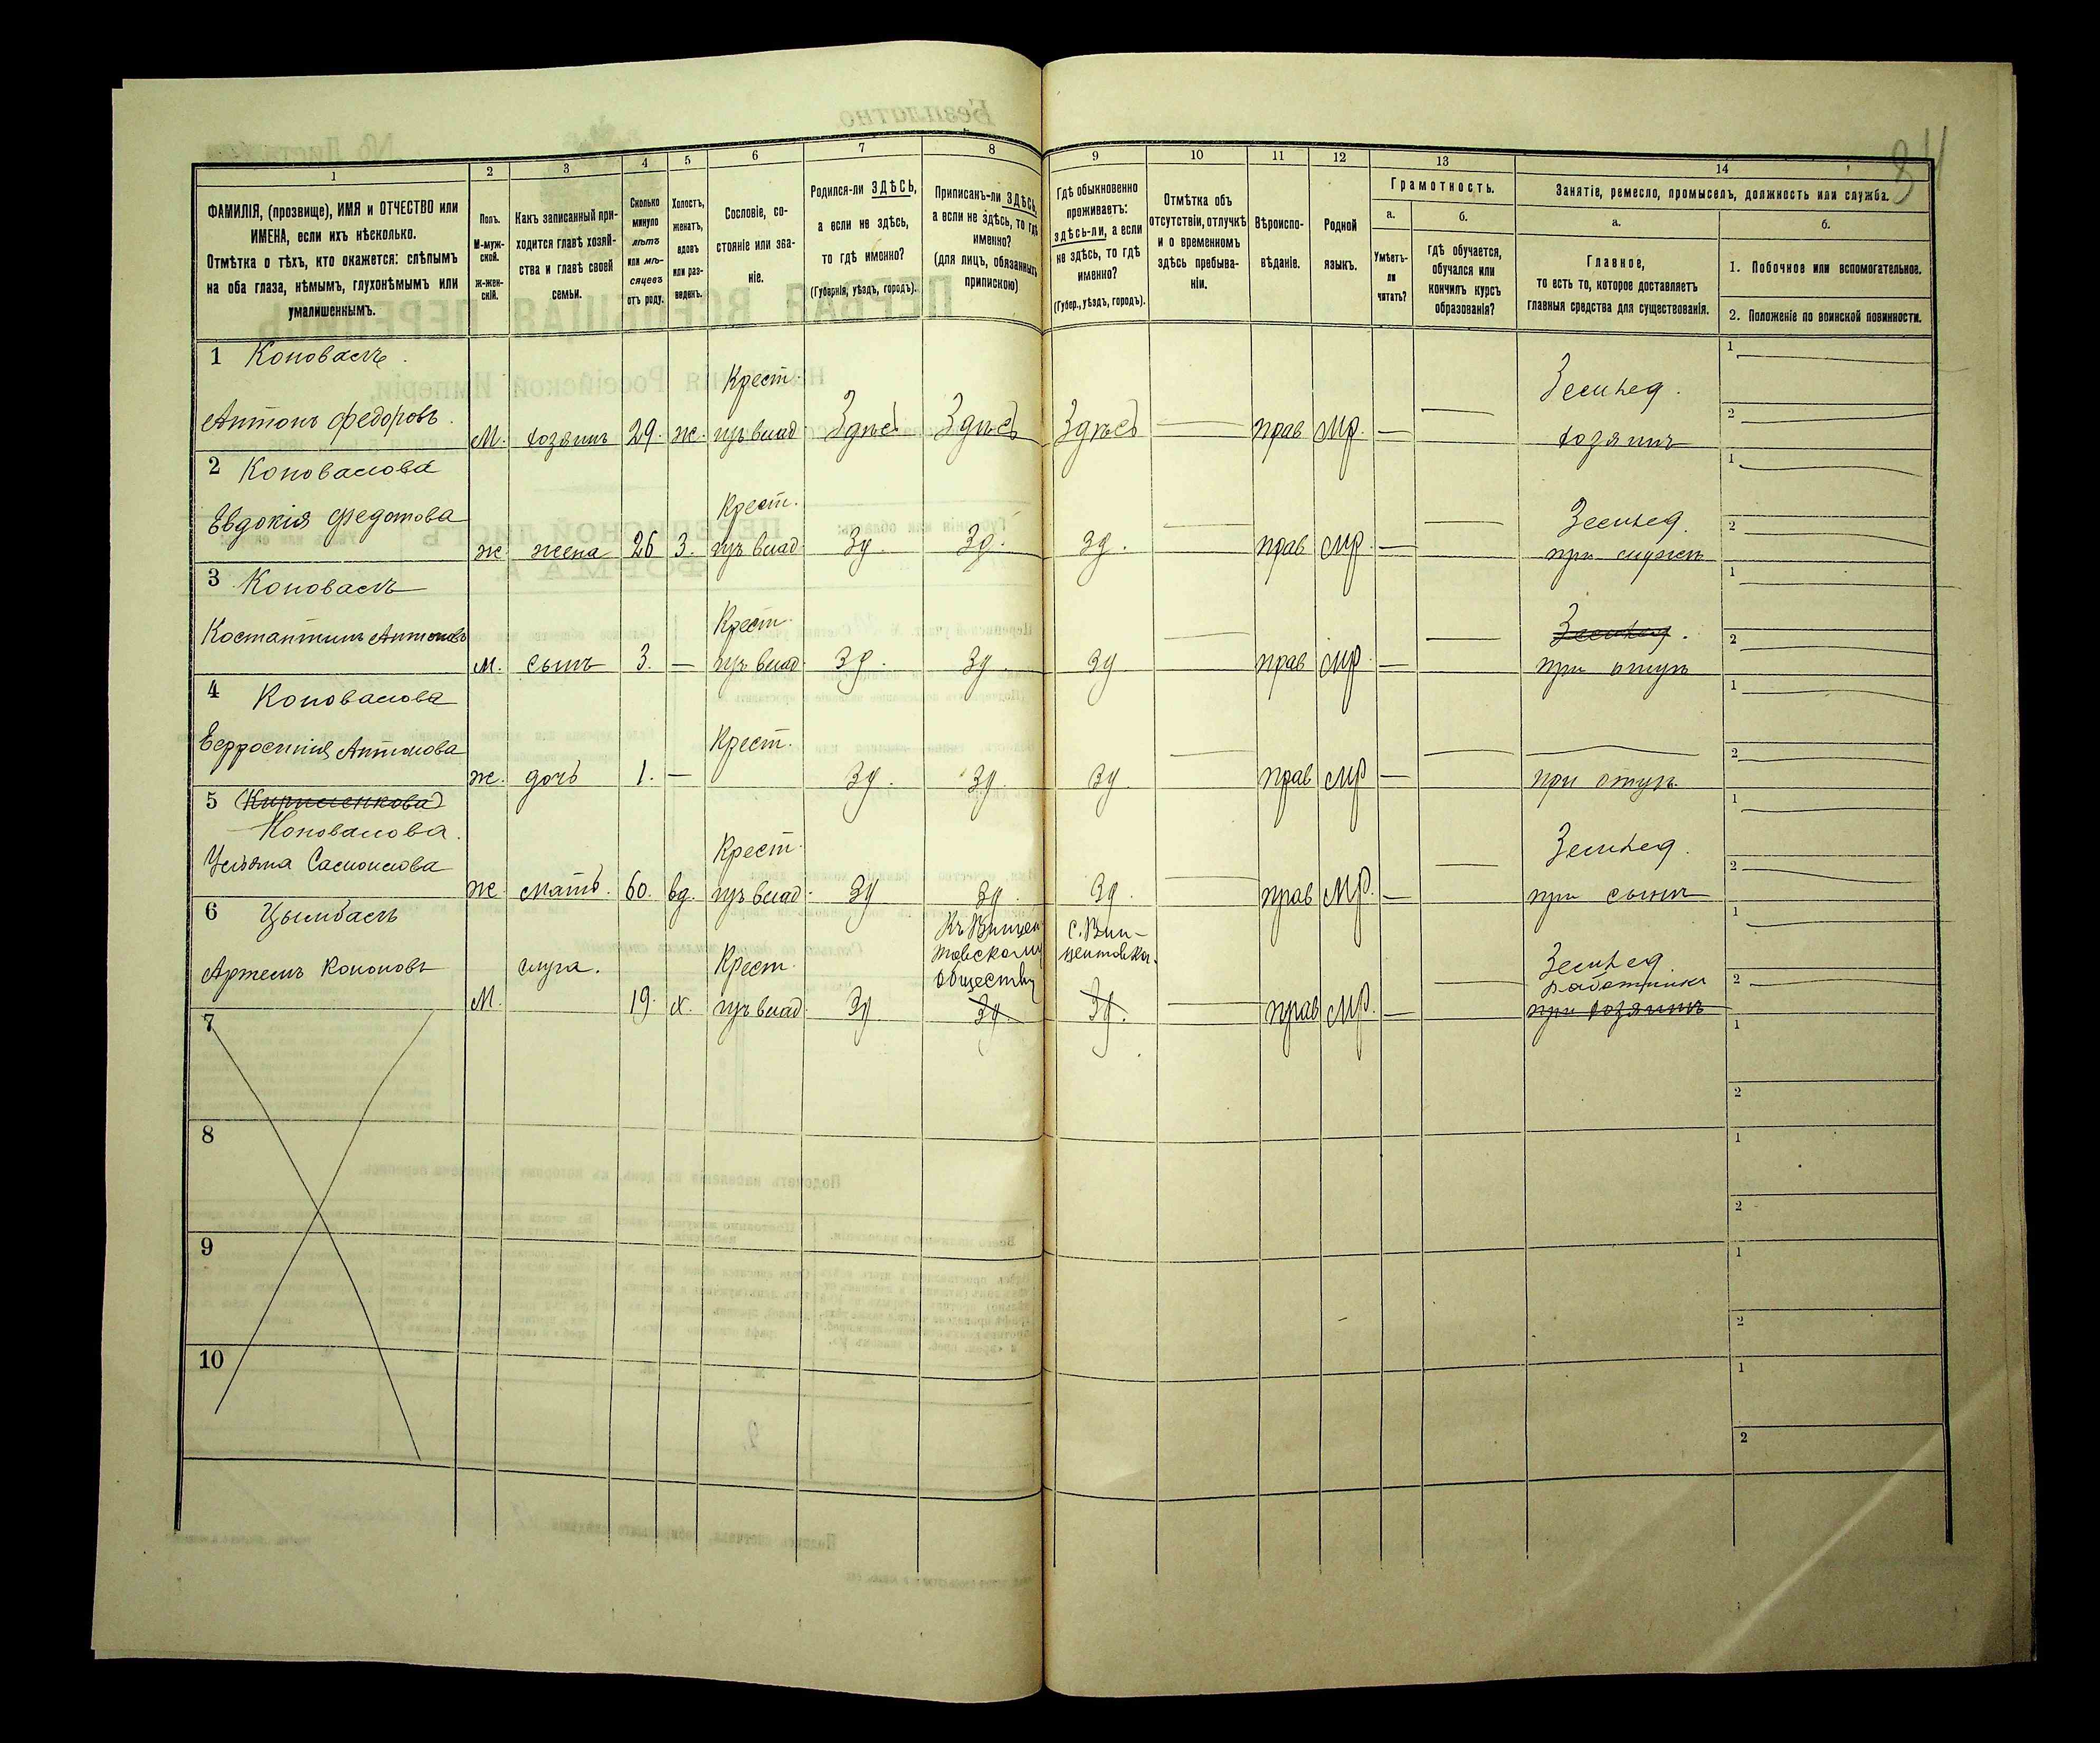 84
1
2
3
4
5
6
7
8
9
10
11
12
13
14
ФАМИЛІЯ, (прозвище), ИМЯ и ОТЧЕСТВО или
ИМЕНА, если ихъ нѣсколько.
Отмѣтка о тѣхъ, кто окажется: слѣпымъ
на оба глаза, нѣмымъ, глухонѣмымъ или
умалишеннымъ.
Полъ.
М-муж-
ской.
Ж-жен-
скій.
Какъ записанный при-
ходится главѣ хозяй-
ства и главѣ своей
семьи.
Сколько
минуло
лѣтъ
или мѣ-
сяцевъ
отъ роду.
Холостъ,
женатъ,
вдовъ
или раз-
веденъ.
Сословіе, со-
стояніе или зва-
ніе.
Родился-ли ЗДѢСЬ,
а если не здѣсь,
то гдѣ именно?
(Губернія, уѣздъ, городъ).
Приписанъ-ли ЗДѢСЬ,
а если не здѣсь, то гдѣ
именно?
(для лицъ, обязанныхъ
припискою)
Гдѣ обыкновенно
проживаетъ:
здѣсь-ли, а если
не здѣсь, то гдѣ
именно?
(Губер., уѣздъ, городъ).
Отмѣтка объ
отсутствіи, отлучкѣ
и о временномъ
здѣсь пребыва-
ніи.
Вѣроиспо-
вѣданіе.
Родной
языкъ.
Грамотность.
а.
Умѣетъ-
ли
читать?
б.
гдѣ обучается,
обучался или
кончилъ курсъ
образованія?
Занятіе, ремесло, промыселъ, должность или служба.
а.
Главное,
то есть то, которое доставляетъ
главныя средства для существованія.
б.
1. Побочное или вспомогательное.
2. Положеніе по воинской повинности.
1 Коновалъ
Крест.
Землед.
1
Антонъ Федоровъ М. хозяинъ 29. ж. изъ влад. Здѣсь Здѣсь Здѣсь — прав мр. — — хозяинъ
2
2 Коновалова
Крест.
Землед.
1
Евдокія Федотова ж. жена 26 з. изъ влад. Зд. Зд. Зд. — прав мр. — — при мужѣ
2
3 Коновалъ
Крест.
Землед.
1
Костантинъ Антоновъ м. сынъ 3. — изъ влад. Зд. Зд. Зд — прав мр — — при отцѣ
2
4 Коновалова
Крест.
1
Ефросинія Антонова ж. дочь 1. — Зд. Зд. Зд. — прав мр — — при отцѣ
2
5 (Кириленкова)
Коновалова.
Крест.
Землед.
1
Ульяна Самойлова ж. мать. 60. вд. изъ влад. Зд Зд. Зд. — прав мр. — — при сынѣ
2
6 Цымбалъ
Къ Вицен
товскому
обществу
с. Вин-
центовка.
1
Артемъ Кононовъ слуга. Крест. Землед.
работника
2
М. 19. х. изъ влад. Зд Зд. Зд. — прав мр. — — при хозяинѣ
7
1
2
8
1
2
9
1
2
10
1
2